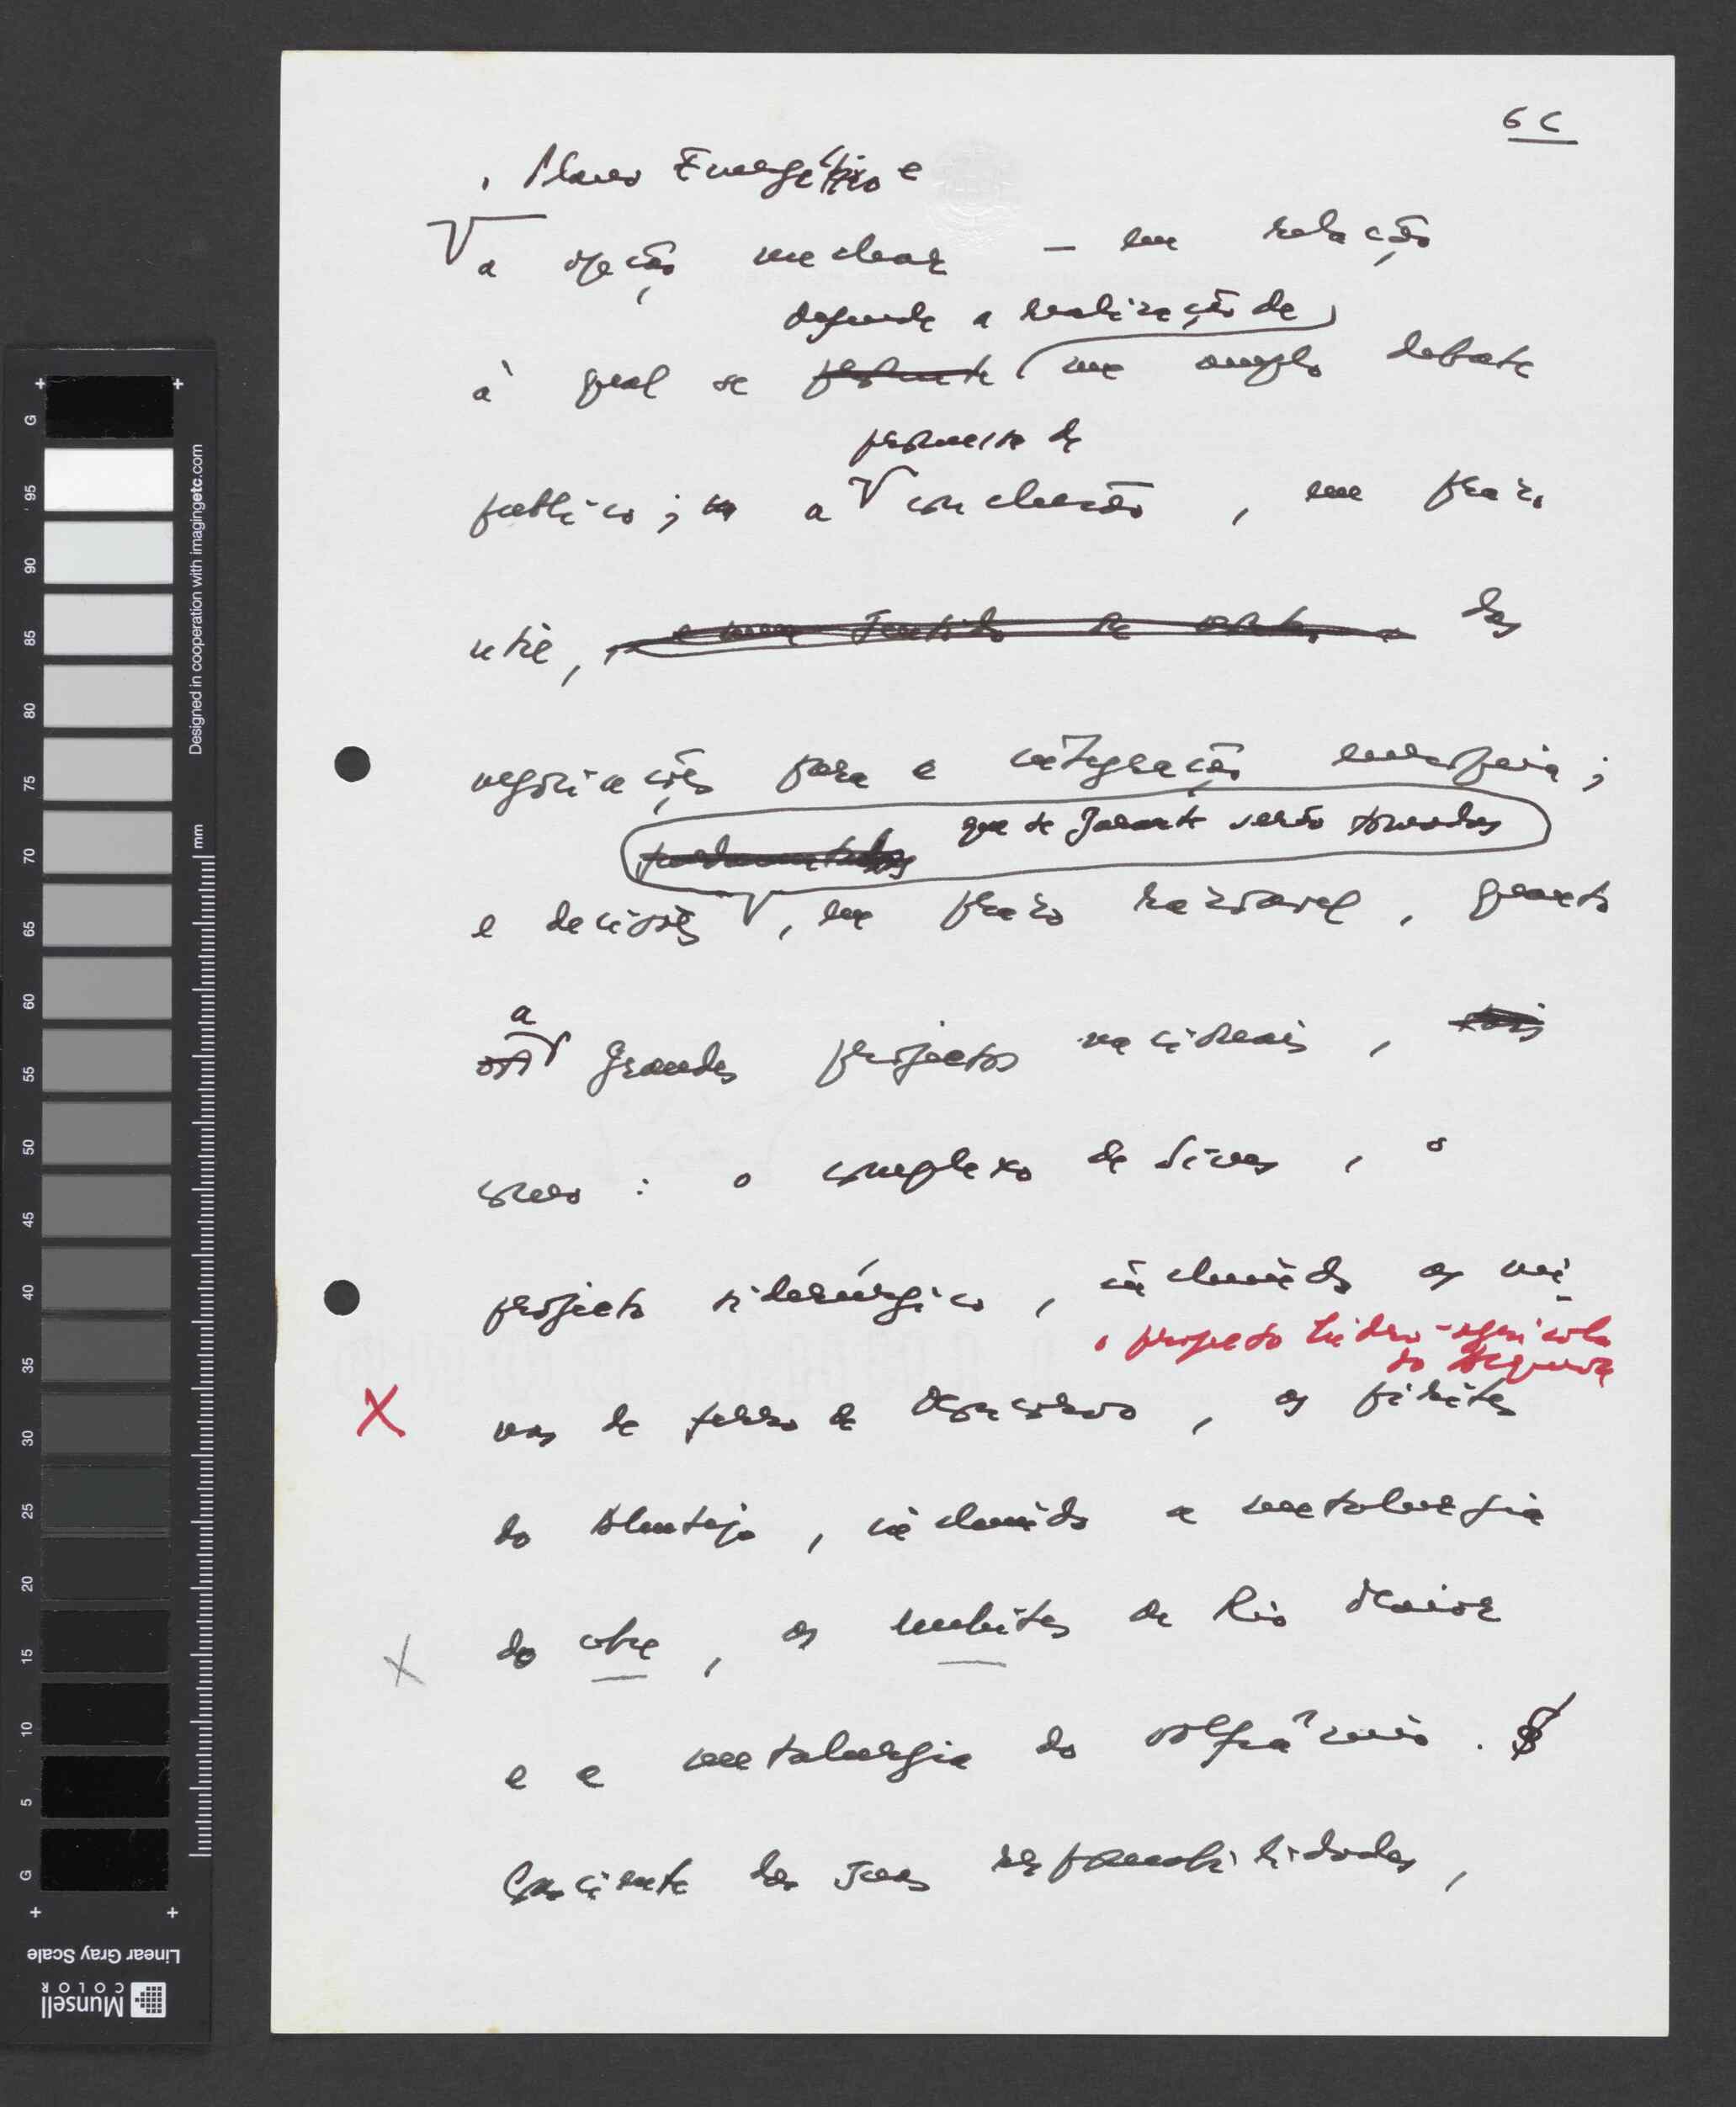 6 C
, Plano Energético e
a opção nuclear – em relação
defende a realização de
à qual se promete um amplo debate
promessa de
público; a conclusão, em prazo
útil, das
negociações para a integração europeia;
que se garante serão tomadas
e decisões, em prazo razoável, quanto
a
grandes projectos nacionais, tais
como : o complexo de Sines, o
projecto siderúrgico, incluindo as mi-
o projecto hidro-agrícola
do Alqueva
X nas de ferro de Moncorvo, as pirites
do Alentejo, incluindo a metalurgia
X do cobre, as lenhites de Rio Maior
e a metalurgia do volfrâmio.
Consciente das suas responsabilidades,
G 95 90 85 80 75 70 65 60 55 50 45 40 35 30 25 20 15 10 5 G
mm
Designed in cooperation with imagingetc.com
Linear Gray Scale
Munsell
COLOR